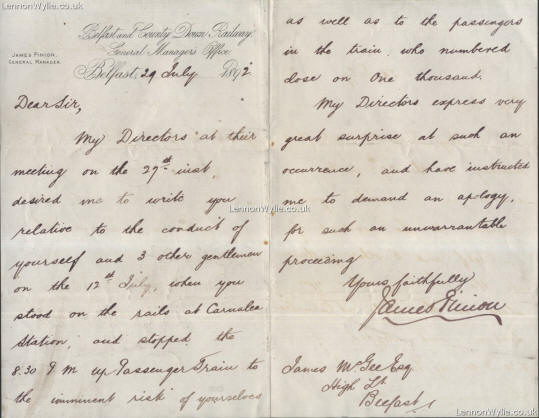 LennonWylie.co.uk
Belfast and County Down Railway,
General Manager's Office,
JAMES PINION,
GENERAL MANAGER.
Belfast, 29 July 1892
Dear Sir,
My Directors at their
meeting on the 27th inst,
desired me to write you
relative to the conduct of
yourself and 3 other gentlemen
on the 12th July, when you
stood on the rails at Carnalea
Station, and stopped the
8.30 P.M up Passenger Train to
the imminent risk of yourselves
LennonWylie.co.uk
as well as to the passengers
in the train, who numbered
close on One thousand.
My Directors express very
great surprise at such an
occurrence, and have instructed
me to demand an apology,
LennonWylie.co.uk
for such an unwarrantable
proceeding
Yours faithfully
James Pinion
James McGee Esq
High St
Belfast
LennonWylie.co.uk